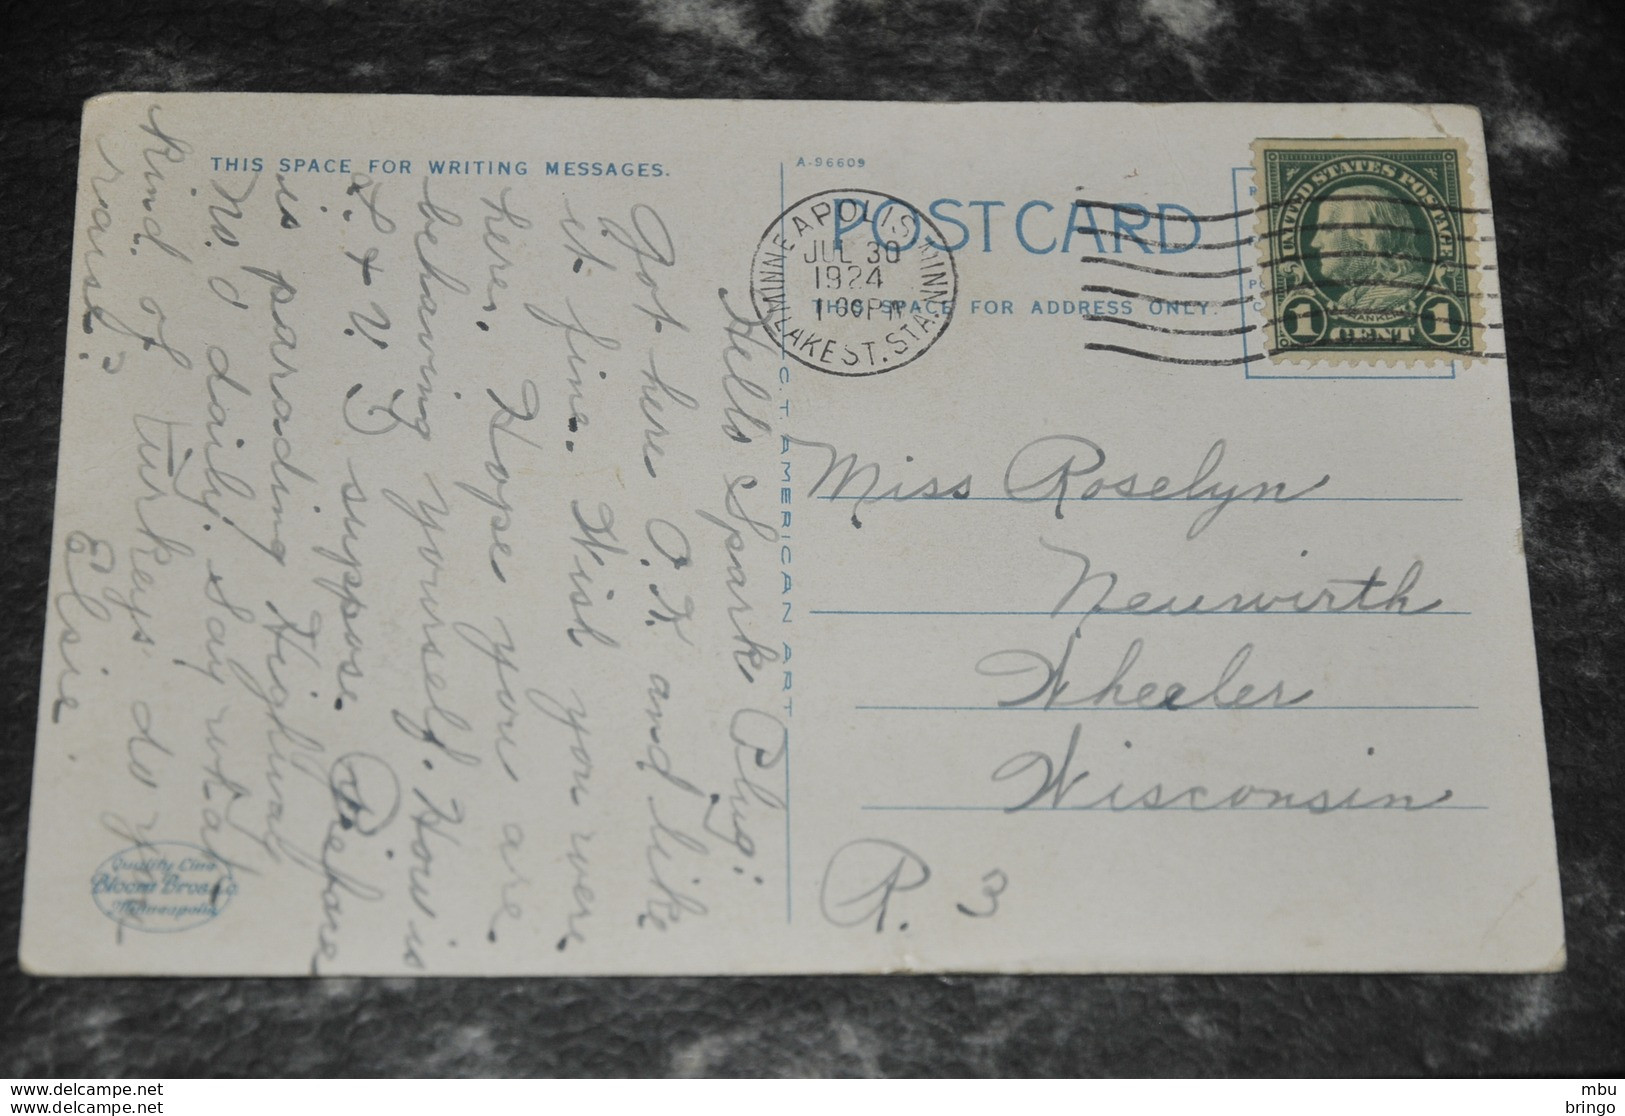 THIS SPACE FOR WRITING MESSAGES.
A-96609
POST CARD
THIS SPACE FOR ADDRESS ONLY.
MINNEAPOLIS, MINN.
JUL 30
1924
1 00 PM
LAKE ST. STA.
UNITED STATES POSTAGE
FRANKLIN
1 CENT 1
C.T. AMERICAN ART
Hello Spark Plug:
Got here O.K. and like
it fine. Wish you were
here. Hope you are
behaving yourself. How is
L. & V. I suppose
is parading Highway
No. 0 daily. Say what
kind of turkeys do you
raise?
Elsie.
Miss Roselyn
Neuwirth
Wheeler
Wisconsin
R. 3
Quality Line
Bloom Bros. Co.
Minneapolis
www.delcampe.net
www.delcampe.net
mbu
bringo